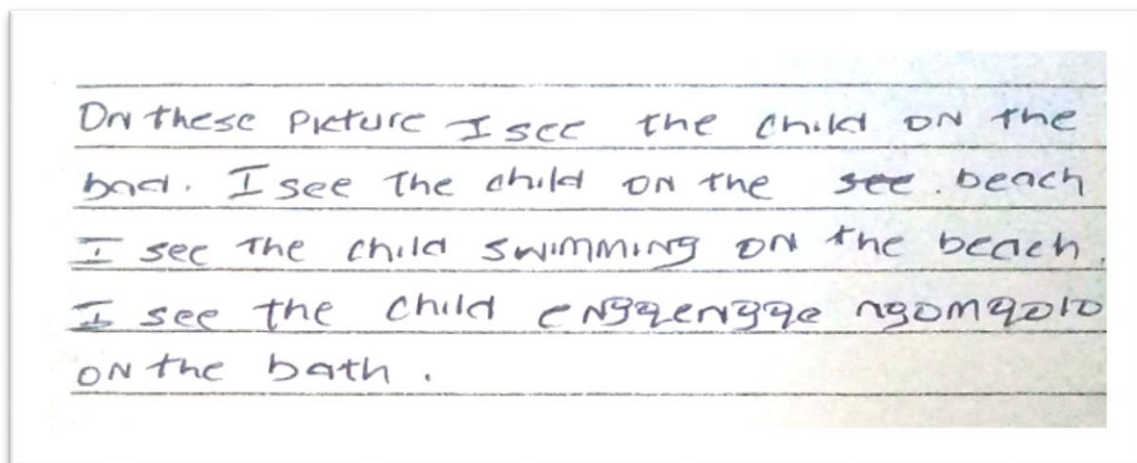 On these Picture I see the child on the
bad. I see The child on the see. beach
I see The child swimming on the beach.
I see the child engqengqe ngomqolo
on the bath.